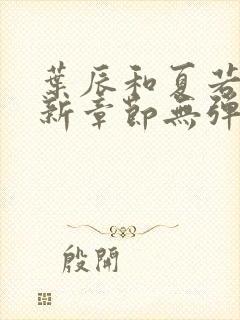 葉辰和夏若
新章節無彈
殷開